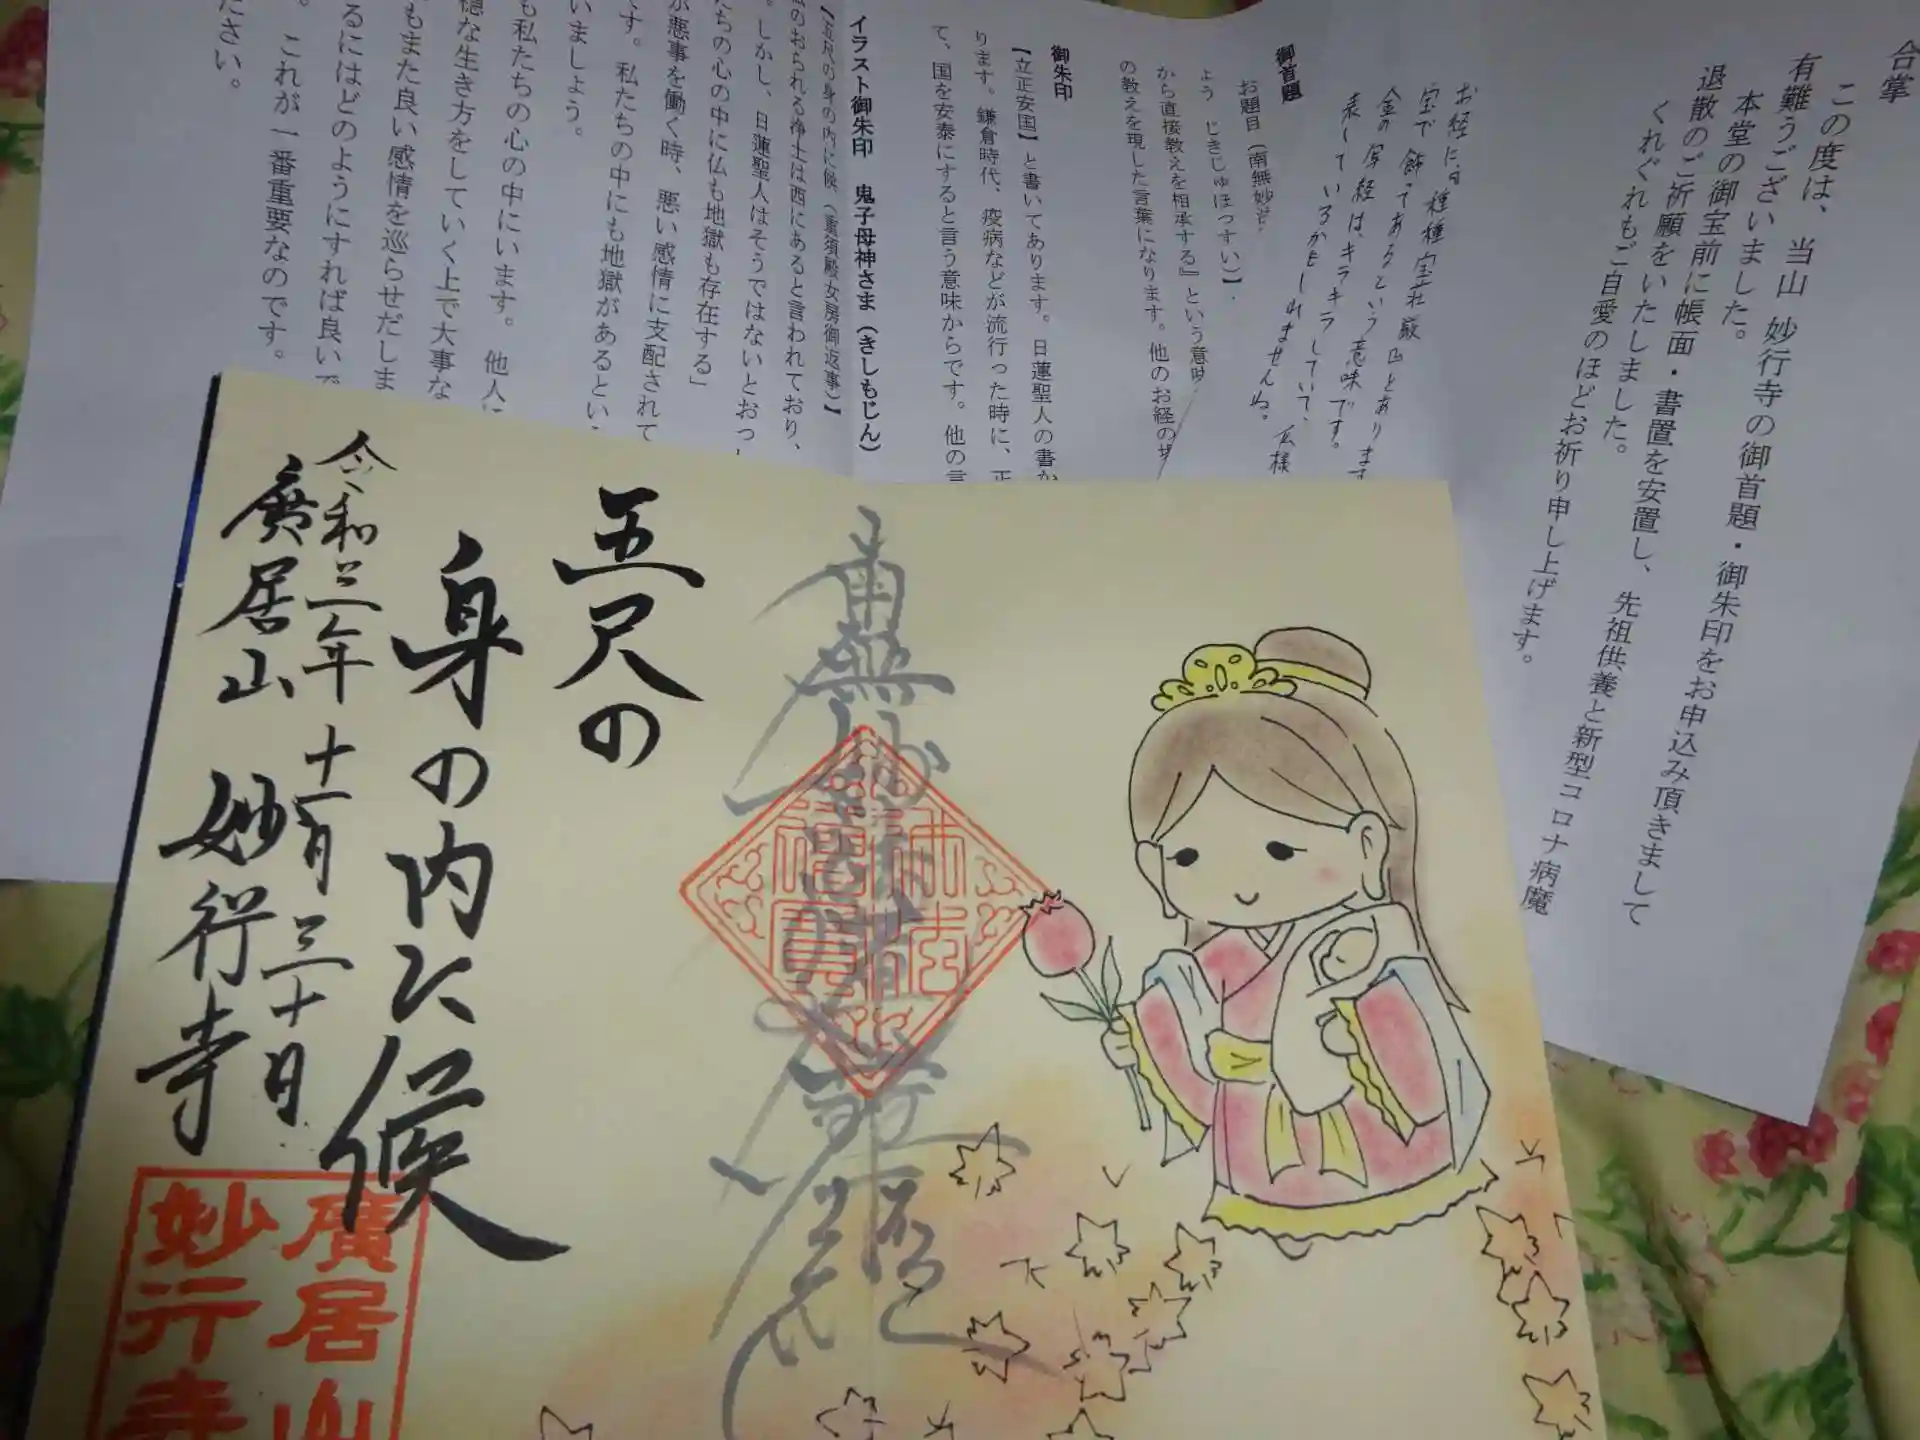 合掌
この度は、当山 妙行寺の御首題・御朱印をお申込み頂きまして
有難うございました。
本堂の御宝前に帳面・書置を安置し、先祖供養と新型コロナ病魔
退散のご祈願をいたしました。
くれぐれもご自愛のほどお祈り申し上げます。
お経には種種宝荘厳
宝で飾ってあるという意味です。
金の写経は、キラキラしていて、仏様
表しているかもしれませんね。
御首題
お題目（南無妙法
よう じきじゅほっすい】.
から直接教えを相承する』という意味
の教えを現した言葉になります。他のお経の
御朱印
【立正安国】と書いてあります。日蓮聖人の書か
ります。鎌倉時代、疫病などが流行った時に、正
て、国を安泰にすると言う意味からです。他の言
イラスト御朱印 鬼子母神さま（きしもじん）
【五尺の身の内に候（重須殿女房御返事）】
仏のおられる浄土は西にあると言われており、
。しかし、日蓮聖人はそうではないとおっ
たちの心の中に仏も地獄も存在する」
が悪事を働く時、悪い感情に支配されて
す。私たちの中にも地獄があるとい
いましょう。
も私たちの心の中にいます。他人に
穏な生き方をしていく上で大事な
もまた良い感情を巡らせだしま
るにはどのようにすれば良いで
。これが一番重要なのです。
ださい。
南無妙法蓮華経
五尺の
身の内に候
令和三年十一月三十日
廣居山 妙行寺
廣居山
妙行寺